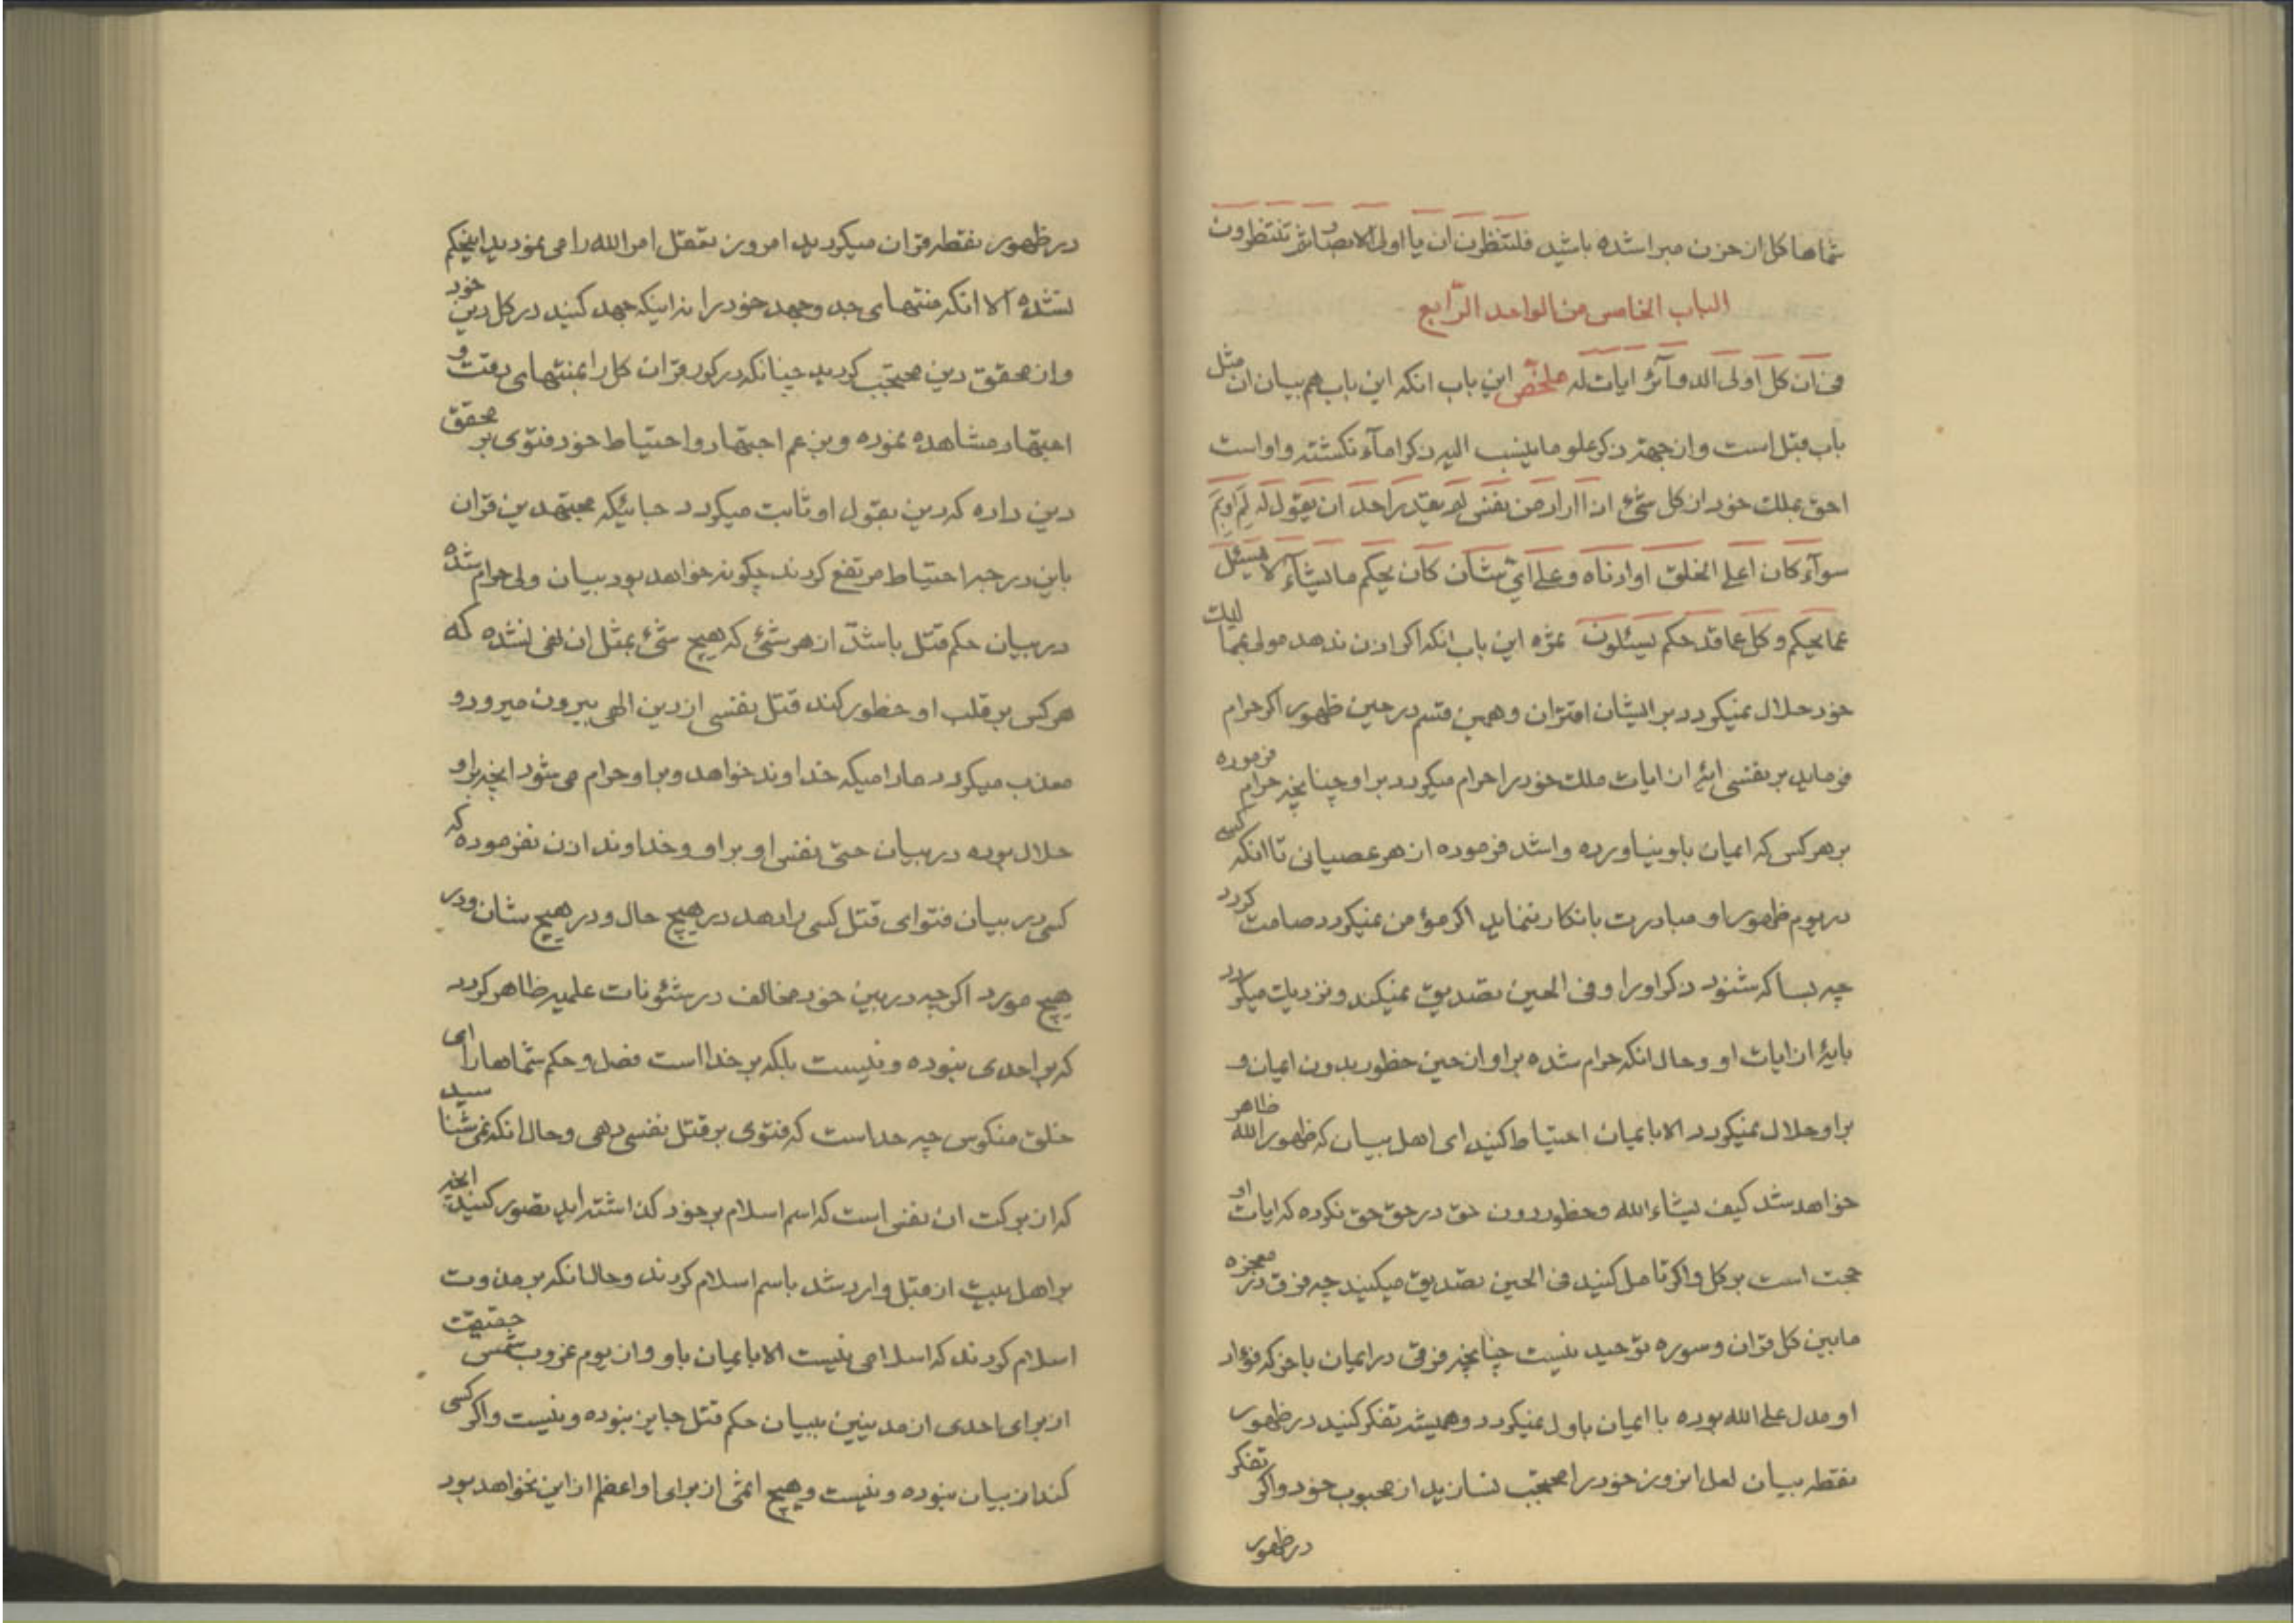 شماها کل از حزن مبرا شده باشید فلتنظرن ان یا اولی الابصار ثم تنتظرون
الباب الخامس من الواحد الرّابع
فی ان کل اولی الدوآئر ایات له ملخّص این باب انکه این باب هم بیان ان مثل
باب قبل است و از جهة ذکر علو ما ینسب الیه ذکر امآء نکشته و او است
احق بملک خود از کل شئ اذا اراد من نفس لم یقدر احد ان یقول له لِمَ او بِمَ
سوآء کان اعلی الخلق او ادناه و علی ایّ شأن کان یحکم ما یشآء لا یسئل
عما یحکم و کل عما قد حکم یسئلون ثمره این باب انکه اکر اذن ندهد مولی بما لیک
خود حلال نمیکردد بر ایشان اقتران و همین قسم در حین ظهور اکر حرام
فرماید بر نفسی ایهٔ از ایات ملک خود را حرام میکردد بر او چنانچه حرام فرموده
بر هر کس که ایمان باو نیاورده و اشد فرموده از هر عصیانی تا انکه کسی
در یوم ظهور او مبادرت بانکار ننماید اکر مؤمن نمیکردد صامت کردد
چه بسا که شنود ذکر او را و فی الحین تصدیق نمیکند و نزدیک میکردد
بایهٔ از ایات او و حال انکه حرام شده بر او از حین خطور بدون ایمان و
بر او حلال نمیکردد الا بایمان احتیاط کنید ای اهل بیان که ظهور الله ظاهر
خواهد شد کیف یشاء الله و خطور دون حق در حق حق نکرده که ایات او
حجت است بر کل و اکر تامل کنید فی الحین تصدیق میکنید چه فرق در معجزه
مابین کل قران و سوره توحید نیست چنانچه فرقی در ایمان باخر که فؤاد
او مدل علی الله بوده با ایمان باول نمیکردد و همیشه تفکر کنید در ظهور
نقطه بیان لعل انروز خود را محتجب نسازید از محبوب خود و اکر تفکر
در ظهور
در ظهور نقطه قران میکردید امروز تعقل امر الله را می نمودید اینحکم
نشده الا انکه منتهای جد و جهد خود را نه اینکه جهد کنید در کل دین خود
و از محقق دین محتجب کردید چنانکه در کور قران کل را بمنتهای دقت و
اجتهاد مشاهده نموده و بزعم اجتهاد و احتیاط خود فتوی بر محقق
دین داده که دین بقول او ثابت میکردد جائیکه مجتهدین قران
باین درجه احتیاط مرتفع کردند چکونه خواهد بود بیان ولی حرام شده
در بیان حکم قتل باشدّ از هر شئ که هیچ شئ بمثل ان نهی نشده که
هر کس بر قلب او خطور کند قتل نفسی از دین الهی بیرون میرود و
معذب میکردد مادامیکه خداوند خواهد و بر او حرام می شود انچه بر او
حلال بوده در بیان حتی نفس او بر او و خداوند اذن نفرموده که
کسی در بیان فتوای قتل کسی را دهد در هیچ حال و در هیچ شان و در
هیچ مورد اکر چه در بین خود مخالف در شئونات علمیه ظاهر کردد
که بر احدی نبوده و نیست بلکه بر خدا است فصل و حکم شماها را ای
خلق منکوس چه حد است که فتوی بر قتل نفسی دهی و حال انکه نمی شناسید
که از برکت ان نفس است که اسم اسلام بر خود کذاشته اید تصور کنید انچه
بر اهل بیت از قبل وارد شد باسم اسلام کردند و حال انکه بر مذوت
اسلام کردند که اسلامی نیست الا بایمان باو و از یوم غروب شمس حقیقت
از برای احدی از مدینین ببیان حکم قتل جایز نبوده و نیست و اکر کسی
کند از بیان نبوده و نیست و هیچ اثمی از برای او اعظم از این نخواهد بود